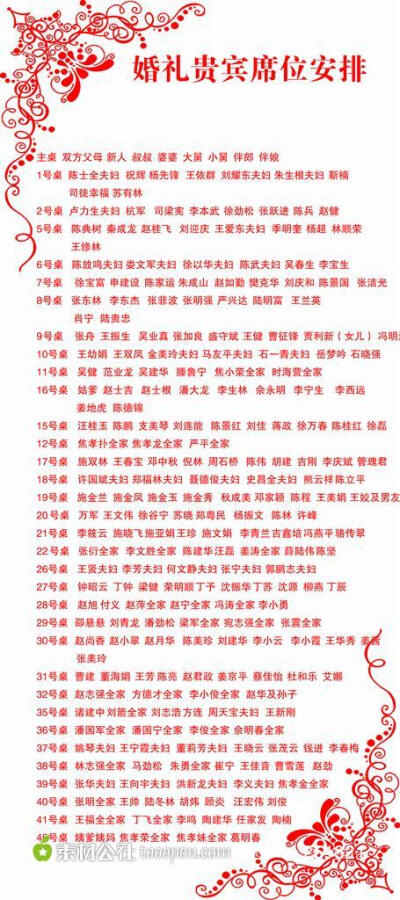 婚礼贵宾席位安排
主桌 双方父母 新人 叔叔 婆婆 大舅 小舅 伴郎 伴娘
1号桌 陈士全夫妇 祝辉 杨先锋 王依群 刘耀东夫妇 朱生根夫妇 靳楠
司徒幸福 苏有林
2号桌 卢力生夫妇 杭军 司梁宪 李本武 徐劲松 张跃进 陈兵 赵健
5号桌 陈典树 秦成龙 赵桂飞 刘迎庆 王爱东夫妇 季明奎 杨超 林顺荣
王修林
6号桌 陈放鸣夫妇 娄文军夫妇 徐以华夫妇 陈武夫妇 吴春生 李宝生
7号桌 徐宝富 申建设 陈家运 朱成山 赵如勤 樊克华 刘庆和 陈景国 张洁光
8号桌 张东林 李东杰 张菲波 张明强 严兴达 陆明富 王兰英
肖宁 陆贵忠
9号桌 张舟 王振生 吴业真 张加良 盛守斌 王健 曹征锋 贾利新（女儿） 冯明
10号桌 王幼娟 王双凤 金美玲夫妇 马友平夫妇 石一青夫妇 岳梦吟 石晓强
11号桌 吴健 范业龙 吴建华 滕鲁宁 焦小荣全家 时海营全家
16号桌 姑爹 赵士吉 赵士根 潘大龙 李生林 余永明 李宁生 李西远
姜地虎 陈德锦
15号桌 汪桂玉 陈鹏 支美琴 刘连能 陈景红 刘佳 蒋政 徐万春 陈桂红 徐磊
12号桌 焦孝扑全家 焦孝龙全家 严平全家
17号桌 施双林 王春宝 邓中秋 倪林 周石桥 陈伟 胡建 吉刚 李庆斌 管瑰君
18号桌 许国斌夫妇 郑福林夫妇 聂德俊夫妇 史昌全夫妇 熊云祥 陈立平
19号桌 施金兰 施金凤 施金玉 施金秀 秋成美 邓家颖 陈程 王美娟 王姣及男友
20号桌 万军 王文伟 徐谷宁 苏晓 郑粤民 杨振文 陈林 许峰
21号桌 李筱云 施晓飞 施亚娟 王珍 施文娟 李青兰 吉鑫培 冯燕平 骆传翠
22号桌 张衍全家 李文胜全家 陈建华 汪磊 姜涛全家 薛陆伟 陈坚
26号桌 王贤夫妇 李芳夫妇 何文静夫妇 张宁夫妇 郭鹏志夫妇
27号桌 钟昭云 丁钟 梁健 荣明顺 丁予 沈振华 丁苏 沈源 柳燕 丁辰
28号桌 赵旭 付义 赵萍全家 赵宁全家 冯涛全家 李小勇
29号桌 邵悬悬 刘青龙 潘劲松 梁军全家 宛志强全家 张震全家
30号桌 赵尚香 赵小翠 赵月华 陈美珍 刘建华 李小云 李小霞 王华秀 姜茜
张美玲
31号桌 曹建 董海娟 王芳 陈亮 赵君政 姜京平 蔡佳怡 杜和乐 艾娜
32号桌 赵志强全家 方德才全家 李小俊全家 赵华及孙子
35号桌 诸建中 刘箭全家 刘志浩方连 周天宝夫妇 王新刚
36号桌 潘国军全家 潘国宁全家 李俊全家 余明春全家
37号桌 姚琴夫妇 王宁霞夫妇 董莉芳夫妇 王晓云 张茂云 钱进 李春梅
38号桌 林志强全家 马劲松 朱勇全家 崔宁 王佳音 曹雪莲 赵劲
39号桌 张华夫妇 王向宇夫妇 洪新龙夫妇 李义夫妇 焦孝金全家
40号桌 张明全家 王帅 陆冬林 胡炜 顾炎 汪宏伟 刘俊
41号桌 王福全家 丁飞全家 李鸣 陶建华 任家发 陶楠
45号桌 姨爹姨妈 焦孝荣全家 焦孝妹全家 葛明春
素材公社 tooopen.com